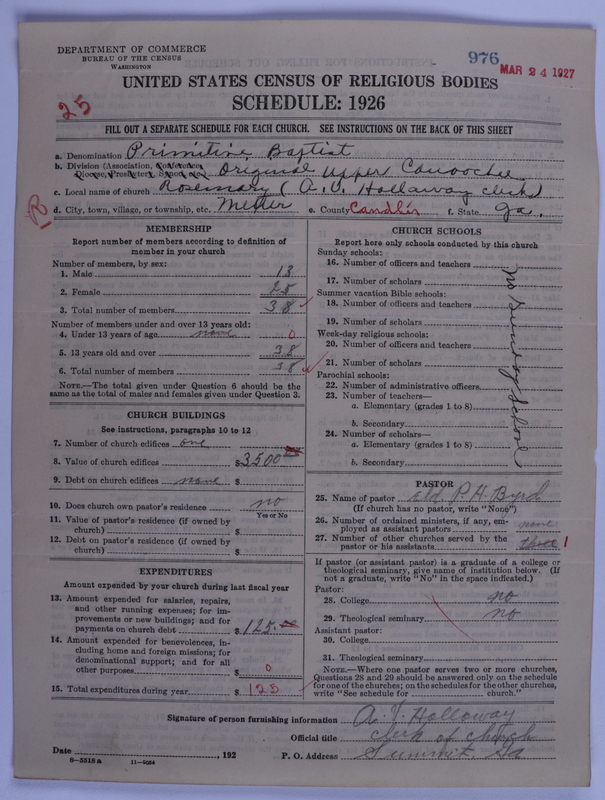 DEPARTMENT OF COMMERCE
BUREAU OF THE CENSUS
WASHINGTON
976
MAR 24 1927
UNITED STATES CENSUS OF RELIGIOUS BODIES
SCHEDULE: 1926
25
FILL OUT A SEPARATE SCHEDULE FOR EACH CHURCH. SEE INSTRUCTIONS ON THE BACK OF THIS SHEET
a. Denomination Primitive Baptist
b. Division (Association, Conference, Original Upper Canoochee
Diocese, Presbytery, Synod, etc.)
c. Local name of church Rosemary (A. J. Hollaway clerk)
R
d. City, town, village, or township, etc. Metter e. County Candler f. State Ga.
MEMBERSHIP
Report number of members according to definition of
member in your church
Number of members, by sex:
1. Male 13
2. Female 25
3. Total number of members 38 ✓
Number of members under and over 13 years old:
4. Under 13 years of age none 0
5. 13 years old and over 38
6. Total number of members 38 ✓
NOTE.—The total given under Question 6 should be
same as the total of males and females given under Question 3.
CHURCH BUILDINGS
See instructions, paragraphs 10 to 12
7. Number of church edifices one
8. Value of church edifices $3500
9. Debt on church edifices none $
10. Does church own pastor's residence no
Yes or No
11. Value of pastor's residence (if owned by
church) $
12. Debt on pastor's residence (if owned by
church) $
EXPENDITURES
Amount expended by your church during last fiscal year
13. Amount expended for salaries, repairs,
and other running expenses; for im-
provements or new buildings; and for
payments on church debt $125.00
14. Amount expended for benevolences, in-
cluding home and foreign missions; for
denominational support; and for all
other purposes $ 0
15. Total expenditures during year $ 125
CHURCH SCHOOLS
Report here only schools conducted by this church
Sunday schools:
16. Number of officers and teachers
17. Number of scholars
Summer vacation Bible schools:
18. Number of officers and teachers
19. Number of scholars
Week-day religious schools:
20. Number of officers and teachers
21. Number of scholars
Parochial schools:
22. Number of administrative officers
23. Number of teachers—
a. Elementary (grades 1 to 8)
b. Secondary
24. Number of scholars—
a. Elementary (grades 1 to 8)
b. Secondary
no Sunday School
PASTOR
25. Name of pastor eld. P. H. Byrd
(If church has no pastor, write "None")
26. Number of ordained ministers, if any, em-
ployed as assistant pastors none
27. Number of other churches served by the
pastor or his assistants three 1
If pastor (or assistant pastor) is a graduate of a college or
theological seminary, give name of institution below. (If
not a graduate, write "No" in the space indicated.)
Pastor:
28. College no
29. Theological seminary no
Assistant pastor:
30. College
31. Theological seminary
NOTE.—Where one pastor serves two or more churches,
Questions 28 and 29 should be answered only on the schedule
for one of the churches; on the schedules for the other churches,
write "See schedule for church."
Signature of person furnishing information A. J. Holloway
Official title clerk of church
Date , 192 P. O. Address Summit, Ga
8—5518 a 11—9084